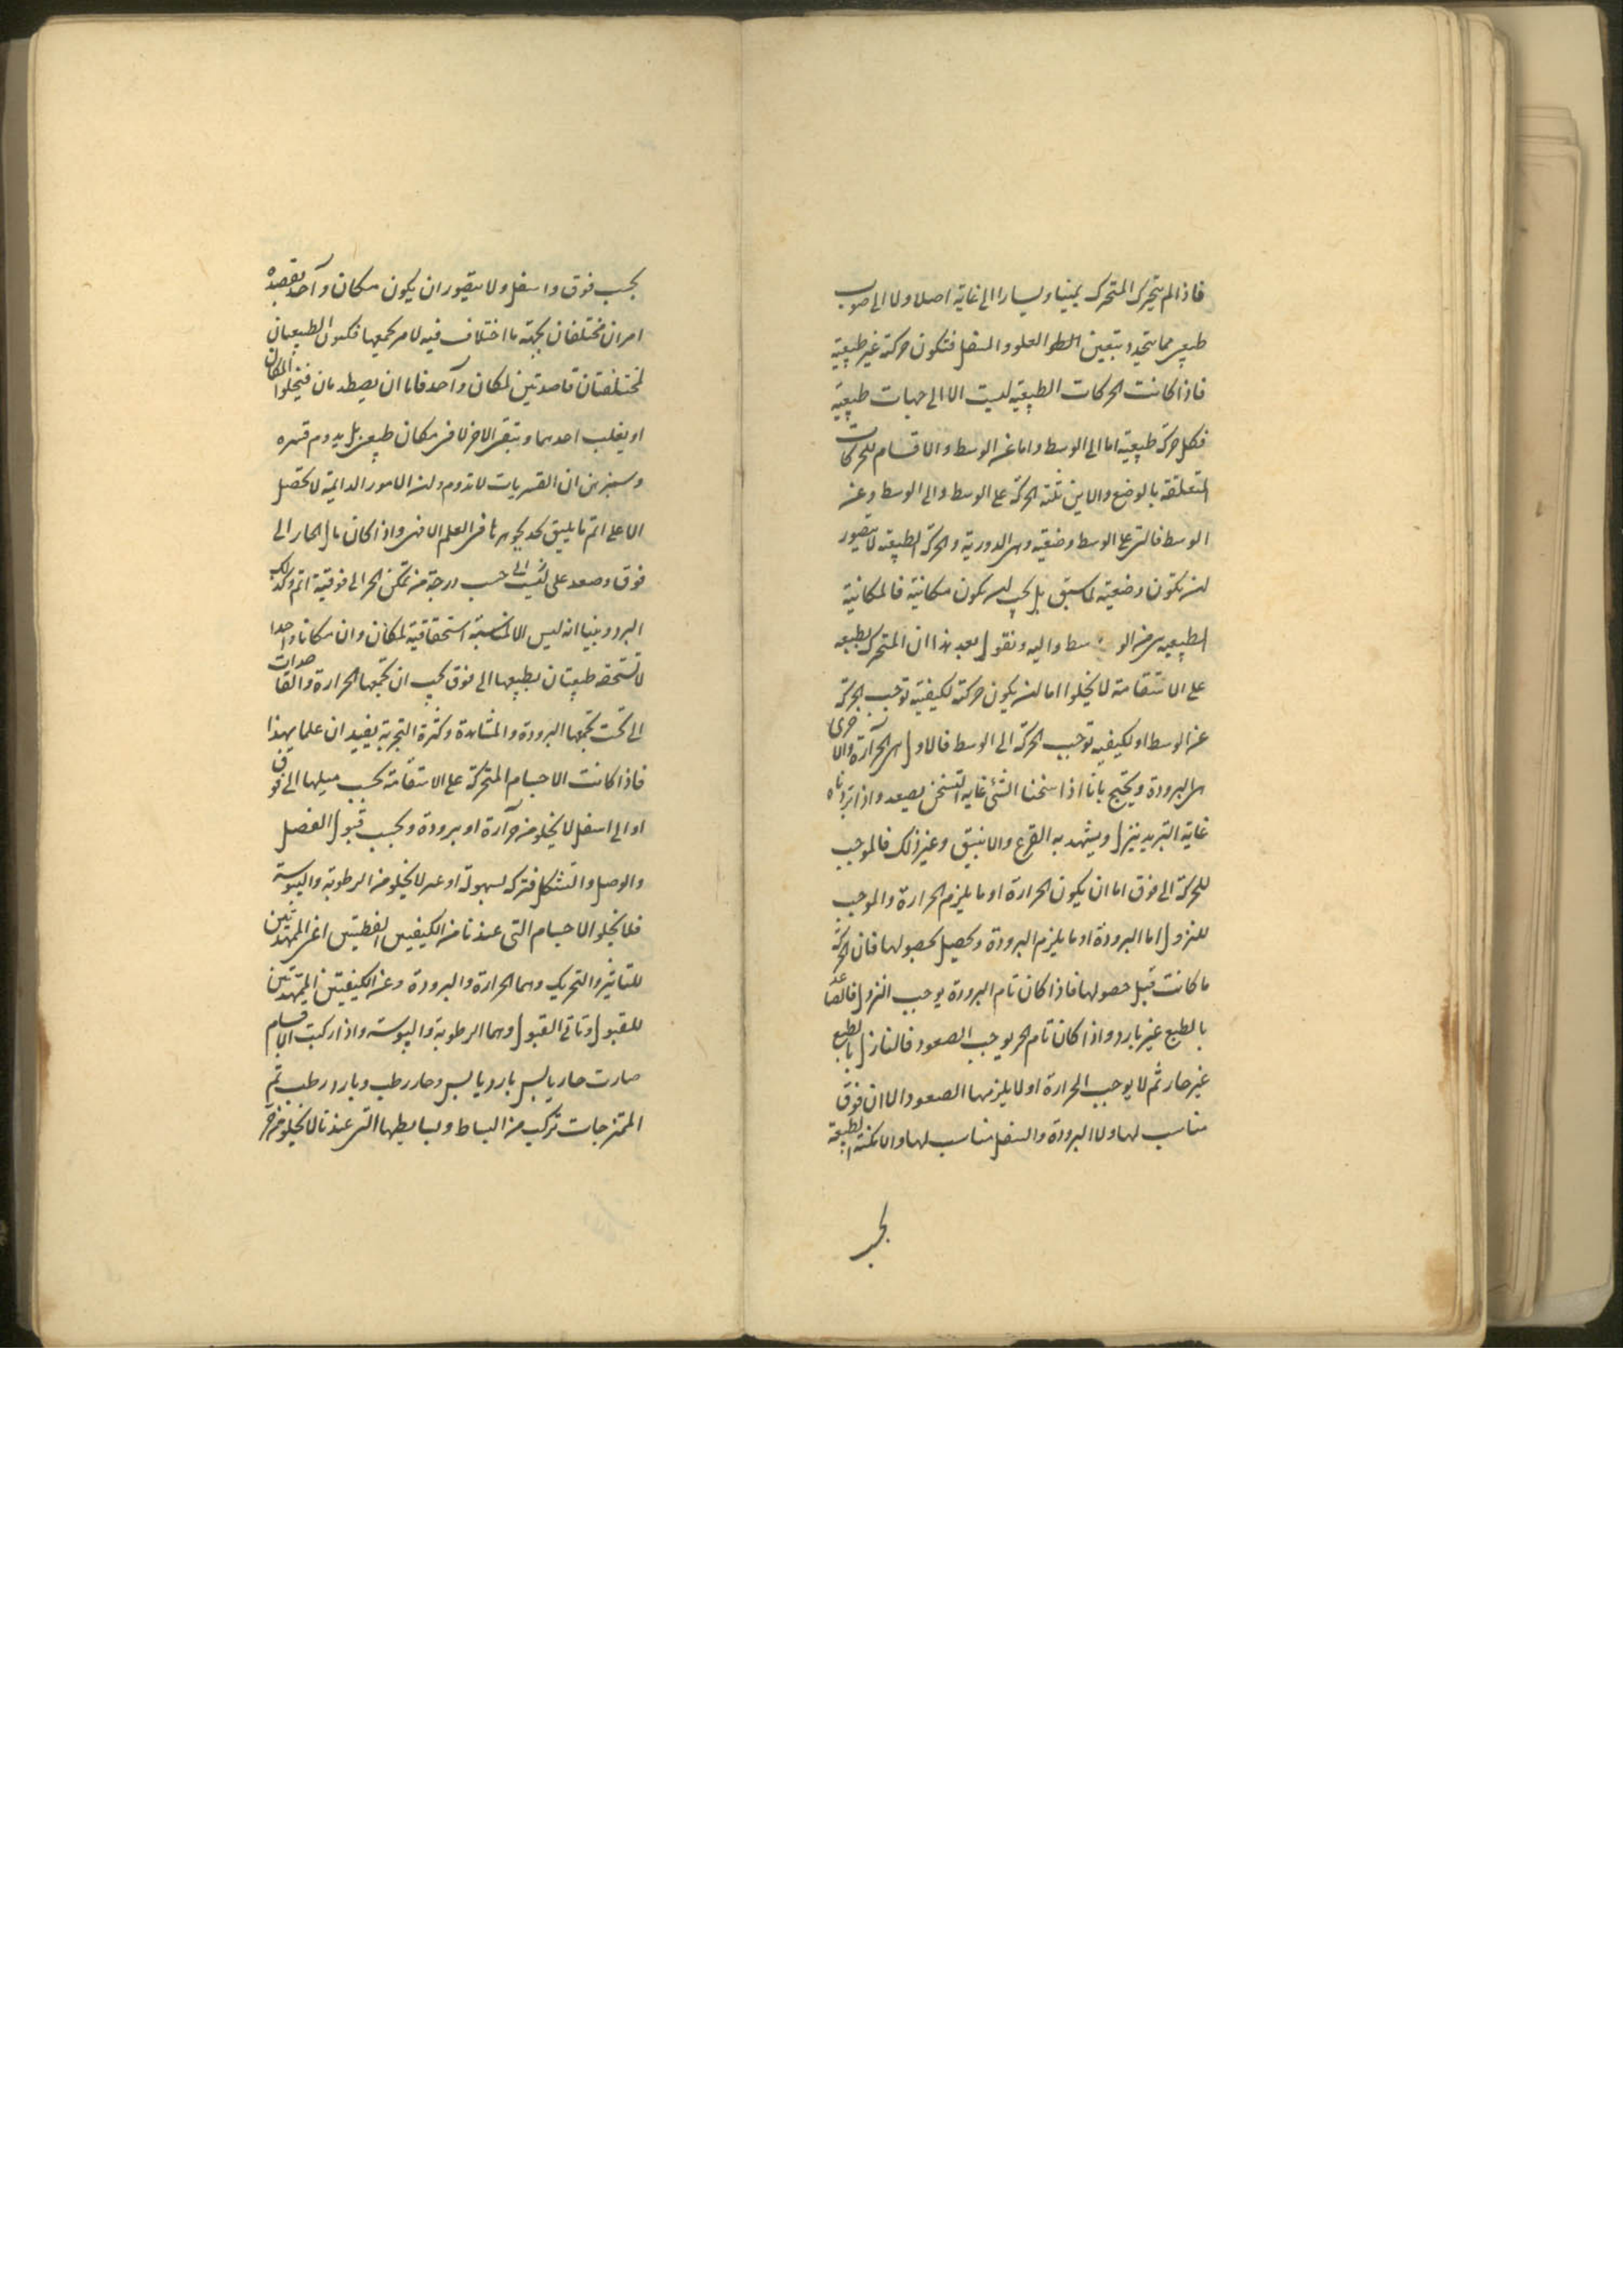 فاذا لم يتحرك المتحرك يمينا ويسارا الى غاية اصلا ولا الى صوب
طبيعى مما يتحدد بتعين العلو والسفل فتكون حركته غير طبيعية
فاذا كانت الحركات الطبيعية ليست الا الى جهات طبيعية
فكل حركة طبيعية اما الى الوسط واما عن الوسط والاقسام للحركات
المتعلقة بالوضع والاين ثلثة الحركة على الوسط والى الوسط وعن
الوسط فالتى على الوسط وضعية وهى الدورية والحركة الطبيعية لا يتصور
ان يكون وضعية لما سبق بل يجب ان يكون مكانية فالمكانية
الطبيعية هى من الوسط واليه ونقول بعد هذا ان المتحرك بطبعه
على الاستقامة لا يخلوا اما ان يكون حركته لكيفية توجب الحركة
عن الوسط او لكيفية توجب الحركة الى الوسط فالاول هى الحرارة والاخرى
هى البرودة ويحتج بانا اذا سخنا الشئ غاية التسخن يصعد واذا بردناه
غاية التبريد ينزل ويشهد به القرع والانبيق وغير ذلك فالموجب
للحركة الى فوق اما ان يكون الحرارة او ما يلزم الحرارة والموجب
للنزول اما البرودة او ما يلزم البرودة ويحصل بحصولها فان الحركة
ما كانت قبل حصولها فاذا كان تام البرودة يوجب النزول فالصاعد
بالطبع غير بارد واذا كان تام الحر يوجب الصعود فالنازل بالطبع
غير حار ثم لا يوجب الحرارة او لا يلزمها الصعود الا ان فوق
مناسب لها ولا البرودة والسفل مناسب لها والامكنة الطبيعة
بحسب
بحسب فوق واسفل ولا يتصور ان يكون مكان واحد يقصده
امران مختلفان بجهة ما اختلاف فيه لامر يجمعها فيكون الطبيعيان
المختلفتان قاصدتين لمكان واحد فاما ان يصطدمان فيخلوا المكان
او يغلب احدهما ويبقى الاخر لا فى مكان طبيعى بل يدوم قسره
وستبرهن ان القسريات لا تدوم وان الامور الدائمة لا تحصل
الا على اتم ما يليق بجوهرها فى العلم الافهى واذا كان مال الحار الى
فوق وصعد على حسب درجة من تمكن الحر الى فوقية اتم وكذلك
البرد وبينا انه ليس الا لمناسبة استحقاقية لمكان وان مكانا واحدا
لا تستحقه طبيعتان بطبعها الى فوق يجب ان تجمعها الحرارة والقاصدات
الى تحت تجمعها البرودة والمشاهدة وكثرة التجربة يفيد ان علما بهذا
فاذا كانت الاجسام المتحركة على الاستقامة بحسب ميلها الى فوق
او الى اسفل لا يخلو من حرارة او برودة وبحسب قبول الفصل
والوصل والتشكل فتركه بسهولة او عسر لا يخلو من الرطوبة واليبوسة
فلا يخلو الاجسام التى عندنا من الكيفيتين الفعليتين اعنى الممهدتين
للتاثير والتحريك وهما الحرارة والبرودة وعن الكيفيتين الممهدتين
للقبول وتاتى القبول وهما الرطوبة واليبوسة واذا ركبت الاقسام
صارت حار يابس بارد يابس وحار رطب وبارد رطب ثم
الممتزجات تركب من البسائط وبسايطها التى عندنا لا يخلو من حر